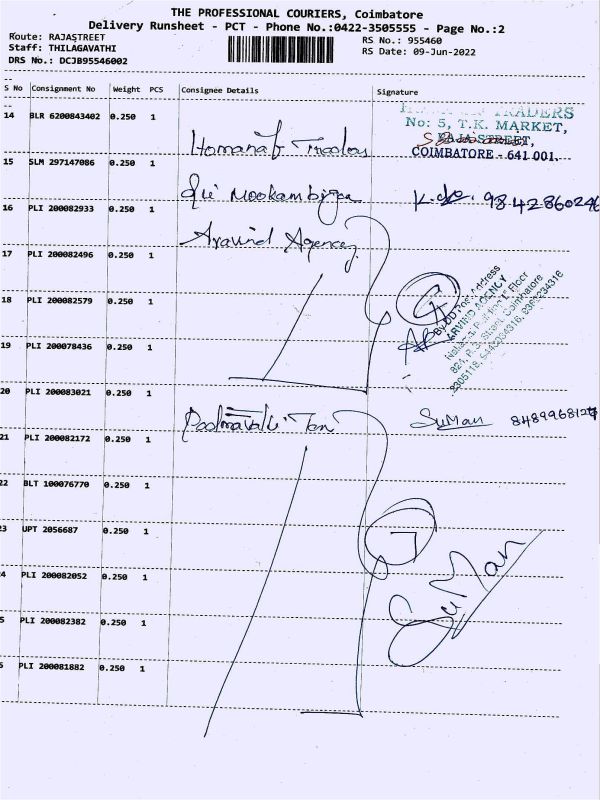 THE PROFESSIONAL COURIERS, Coimbatore
Delivery Runsheet - PCT - Phone No.:0422-3505555 - Page No.:2
Route: RAJASTREET
RS No.: 955460
Staff: THILAGAVATHI
RS Date: 09-Jun-2022
DRS No.: DCJB95546002
S No Consignment No Weight PCS Consignee Details Signature
14 BLR 6200843402 0.250 1
TRADERS
No: 5, T.K. MARKET,
RAJA STREET,
COIMBATORE - 641 001.
15 SLM 297147086 0.250 1
16 PLI 200082933 0.250 1 Aravind Agency
17 PLI 200082496 0.250 1
18 PLI 200082579 0.250 1
ARVIND AGENCY
19 PLI 200078436 0.250 1
20 PLI 200083021 0.250 1 SuMan
21 PLI 200082172 0.250 1
22 BLT 100076770 0.250 1
23 UPT 2056687 0.250 1
4 PLI 200082052 0.250 1
SuMan
5 PLI 200082382 0.250 1
5 PLI 200081882 0.250 1